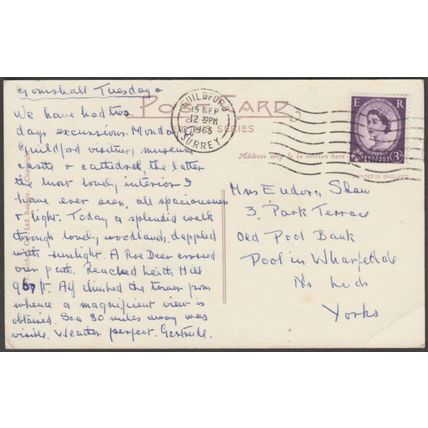 Gomshall Tuesday
POST CARD
SERIES
GUILDFORD
15 SEP
12 PM
1965
SURREY
E R
3D
Address only to be written here
PRINTED IN ENGLAND
We have had two
days excursions. Monday
Guildford visiting museum
castle & cathedral the latter
the most lovely interior I
have ever seen, all spaciousness
& light. Today a splendid walk
through lovely woodlands dappled
with sunlight. A Roe Deer crossed
our path. Reached Leith Hill
967 ft. All climbed the tower from
whence a magnificent view is
obtained. Sea 30 miles away was
visible. Weather perfect. Gertrude.
Mrs Eudora Shaw
3. Park Terrace
Old Pool Bank
Pool in Wharfedale
Nr Leeds
Yorks